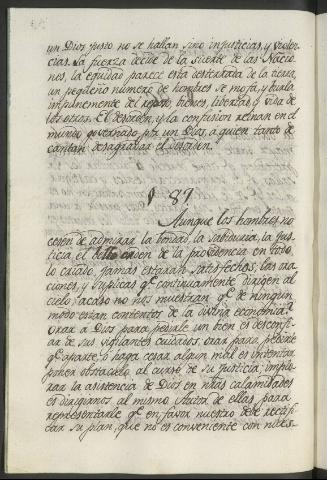 un Dios justo no se hallan sino injusticias, y violen-
cias. La fuerza decide de la suerte de las Nacio-
nes, la equidad parece esta desterrada de la tierra,
un pequeño numero de hombres se mofa, y burla
impunemente del reposo, bienes, libertad, y vida de
los otros. El desorden, y la confusion reinan en el
mundo governado por un Dios, a quien tanto de
cantan desagradar el desorden.
§ 89.
Aunque los hombres no
cesen de admirar la bondad, la sabiduria, la Jus-
ticia, el bello orden de la providencia en todo
lo criado, jamas estaran satisfechos; las ora
ciones, y suplicas qe continuamente dirigen al
cielo, acaso no nos muestran qe de ningun
modo estan contentos de la divina economia?
Orar a Dios para pedirle un bien es desconfi-
ar de sus vigilantes cuidados, orar para pedirle
qe aparte, o haga cesar algun mal es intentar
poner obstaculo al curso de su justicia; implo-
rar la asistencia de Dios en nras calamidades
es dirigirnos al mismo Autor de ellas para
representarle qe en favor nuestro debe rectifi
car su plan, que no es conveniente con nues-